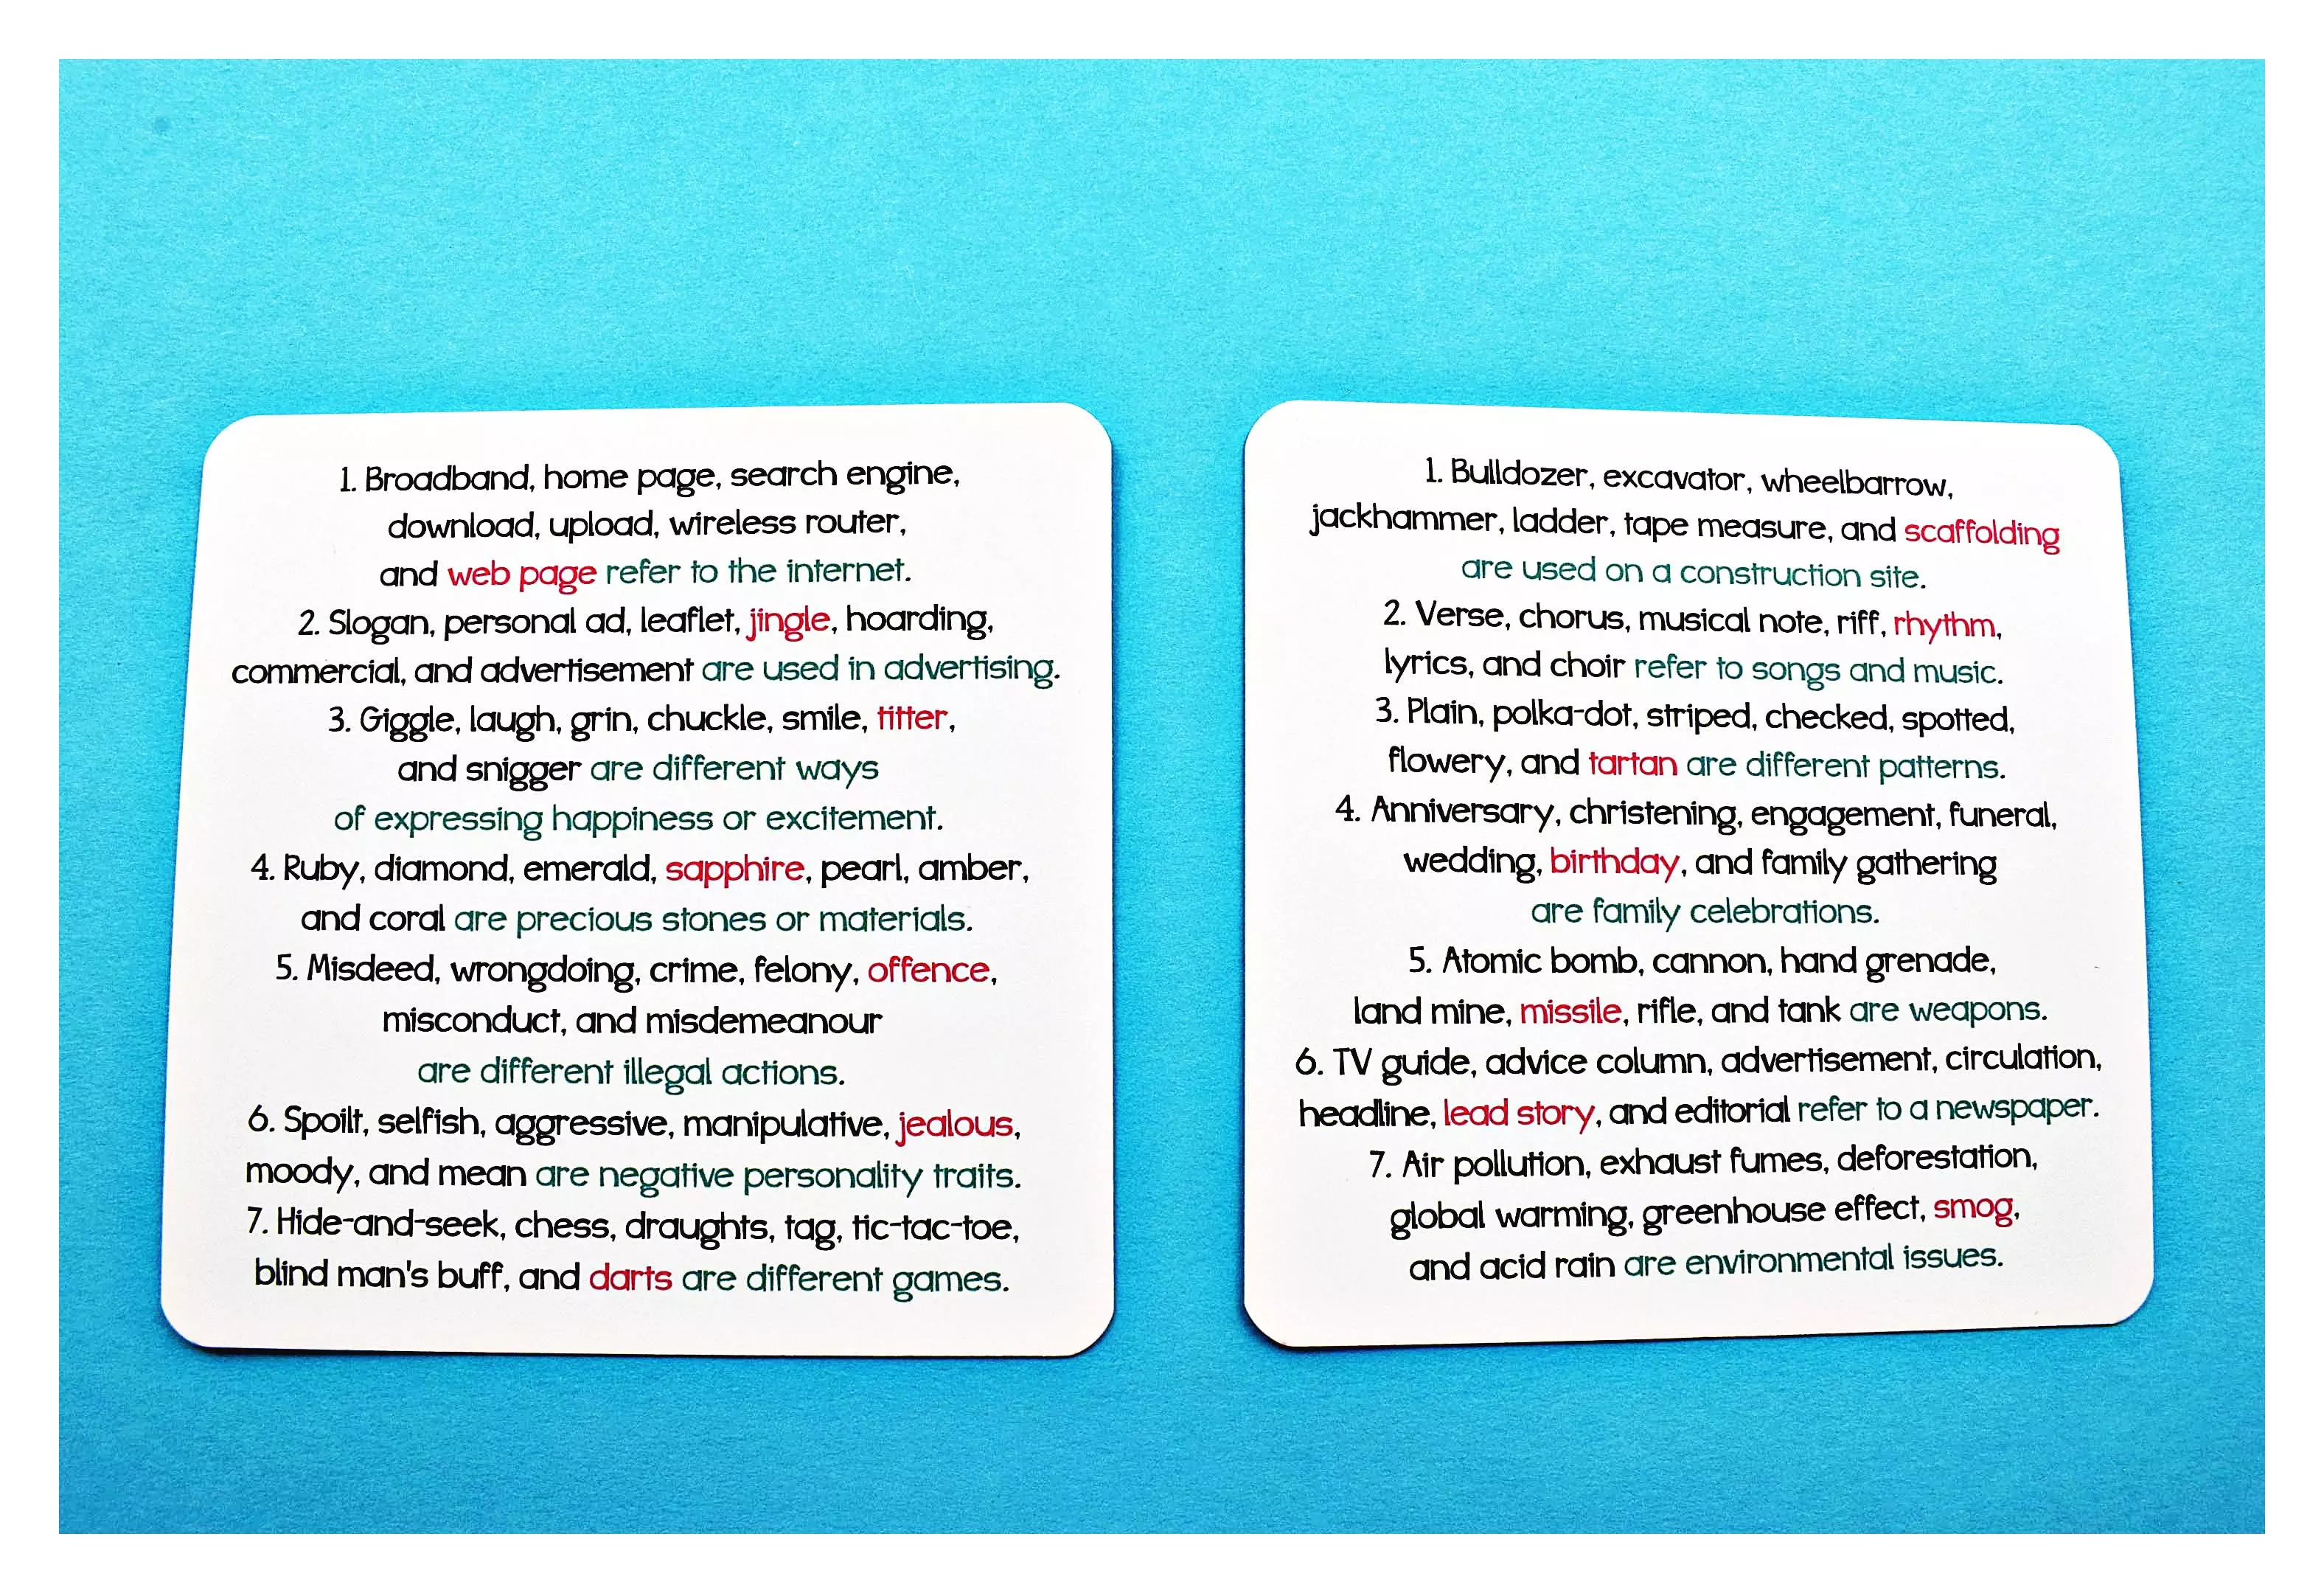 1. Broadband, home page, search engine,
download, upload, wireless router,
and web page refer to the internet.
2. Slogan, personal ad, leaflet, jingle, hoarding,
commercial, and advertisement are used in advertising.
3. Giggle, laugh, grin, chuckle, smile, titter,
and snigger are different ways
of expressing happiness or excitement.
4. Ruby, diamond, emerald, sapphire, pearl, amber,
and coral are precious stones or materials.
5. Misdeed, wrongdoing, crime, felony, offence,
misconduct, and misdemeanour
are different illegal actions.
6. Spoilt, selfish, aggressive, manipulative, jealous,
moody, and mean are negative personality traits.
7. Hide-and-seek, chess, draughts, tag, tic-tac-toe,
blind man's buff, and darts are different games.
1. Bulldozer, excavator, wheelbarrow,
jackhammer, ladder, tape measure, and scaffolding
are used on a construction site.
2. Verse, chorus, musical note, riff, rhythm,
lyrics, and choir refer to songs and music.
3. Plain, polka-dot, striped, checked, spotted,
flowery, and tartan are different patterns.
4. Anniversary, christening, engagement, funeral,
wedding, birthday, and family gathering
are family celebrations.
5. Atomic bomb, cannon, hand grenade,
land mine, missile, rifle, and tank are weapons.
6. TV guide, advice column, advertisement, circulation,
headline, lead story, and editorial refer to a newspaper.
7. Air pollution, exhaust fumes, deforestation,
global warming, greenhouse effect, smog,
and acid rain are environmental issues.